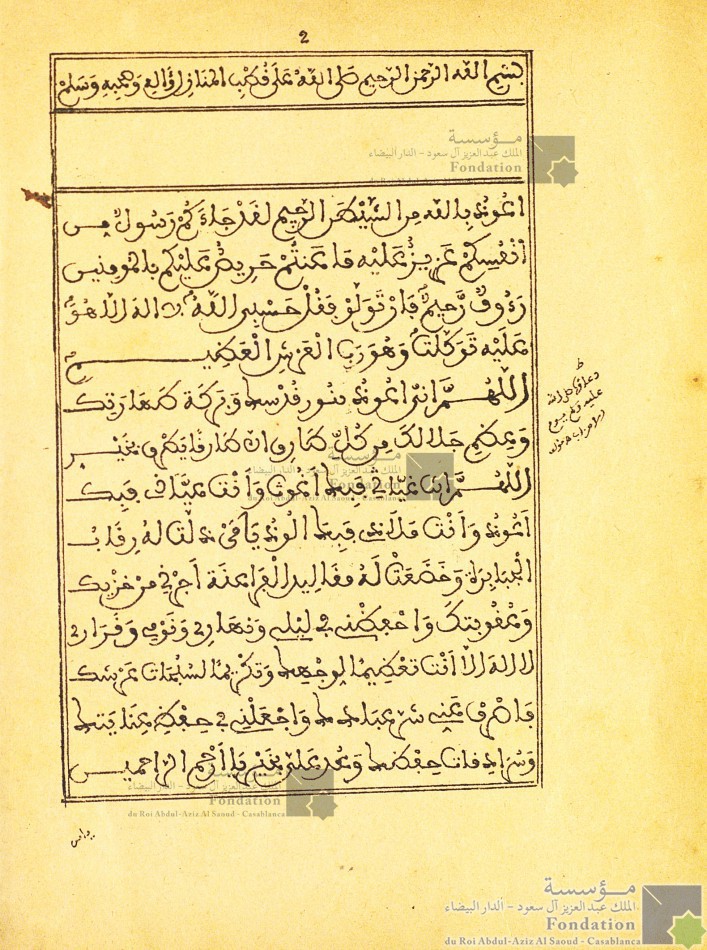 2
بسم الله الرحمن الرحيم صلى الله على قطب وصحبه وسلم
مؤسسة
الملك عبد العزيز آل سعود - الدار البيضاء
Fondation
اعوذ بالله من الشيطن الرجيم لقد جاءكم رسول من
انفسكم عزيز عليه ما عنتم حريص عليكم بالمومنين
رءوف رحيم فان تولوا فقل حسبي الله لا اله الا هو
عليه توكلت وهو رب العرش العظيم
اللهم اني اعوذ بنور قدسك وبركة طهارتك
وبعظيم جلالك من كل طارق الا طارقا يطرق بخير
اللهم انت غياثي فبك أغوث وأنت عياذي فبك
أعوذ وأنت ملاذي فبك ألوذ يا من ذلت له رقاب
الجبابرة وخضعت له مقاليد الفراعنة أجرني من خزيك
وعقوبتك واحفظني في ليلي ونهاري ونومي وقراري
لا اله الا أنت تعظيما لوجهك وتكريما لسبحات عرشك
فاصرف عني شر عبادك واجعلني في حفظ عنايتك
وسرادقات حفظك وعد علي بخير يا أرحم الراحمين
مؤسسة
الملك عبد العزيز آل سعود - الدار البيضاء
Fondation
du Roi Abdul-Aziz Al Saoud - Casablanca
Fondation
du Roi Abdul-Aziz Al Saoud - Casablanca